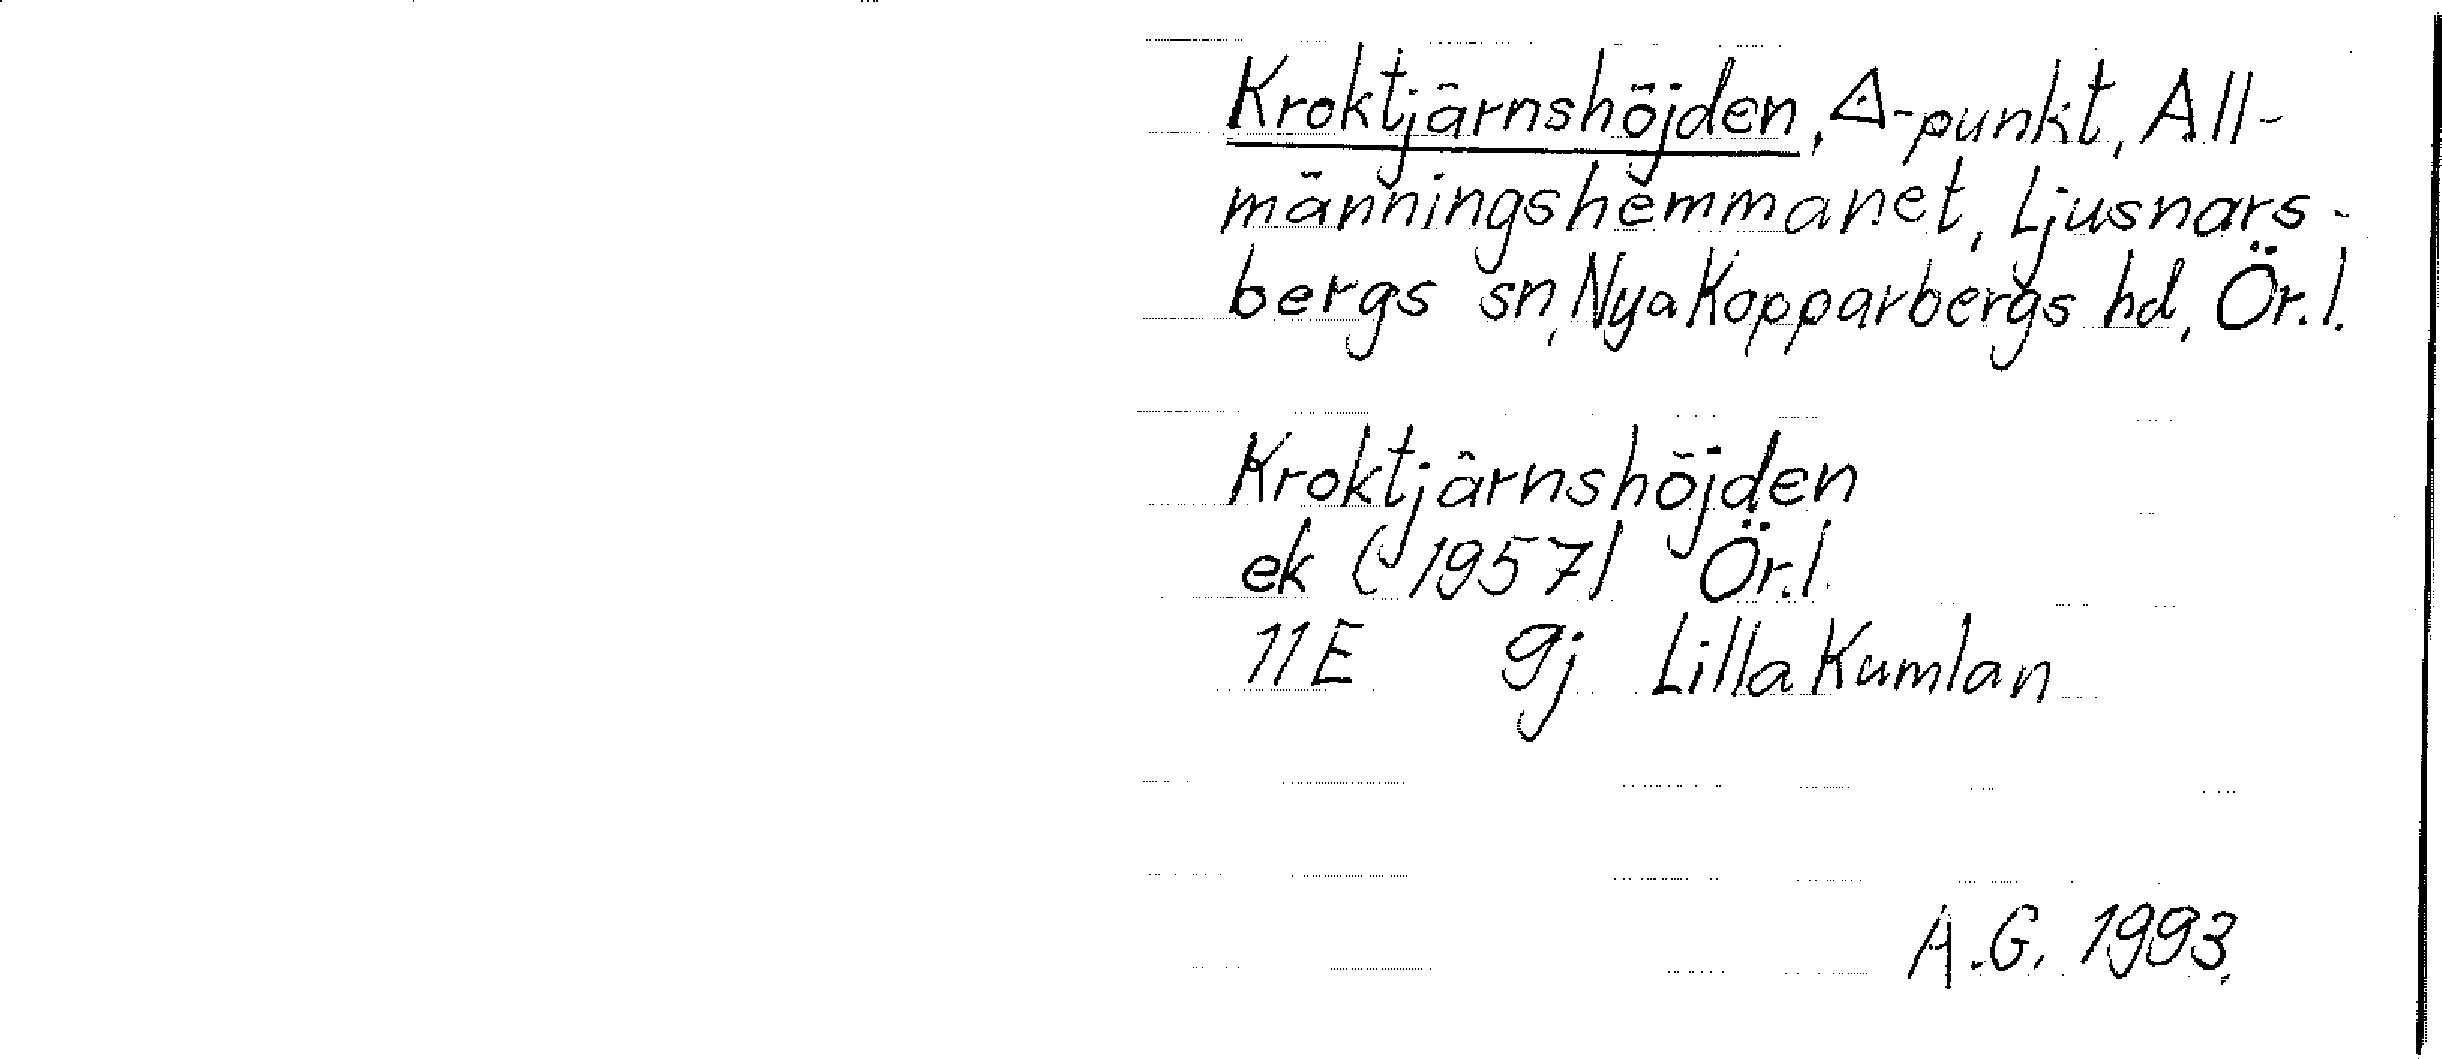 Kroktjärnshöjden, △-punkt, All-
männingshemmanet, Ljusnars-
bergs sn, Nya Kopparbergs hd, Ör.l.
Kroktjärnshöjden
ek (1957) Ör.l.
11E 9j Lilla Kumlan
A.G. 1993.